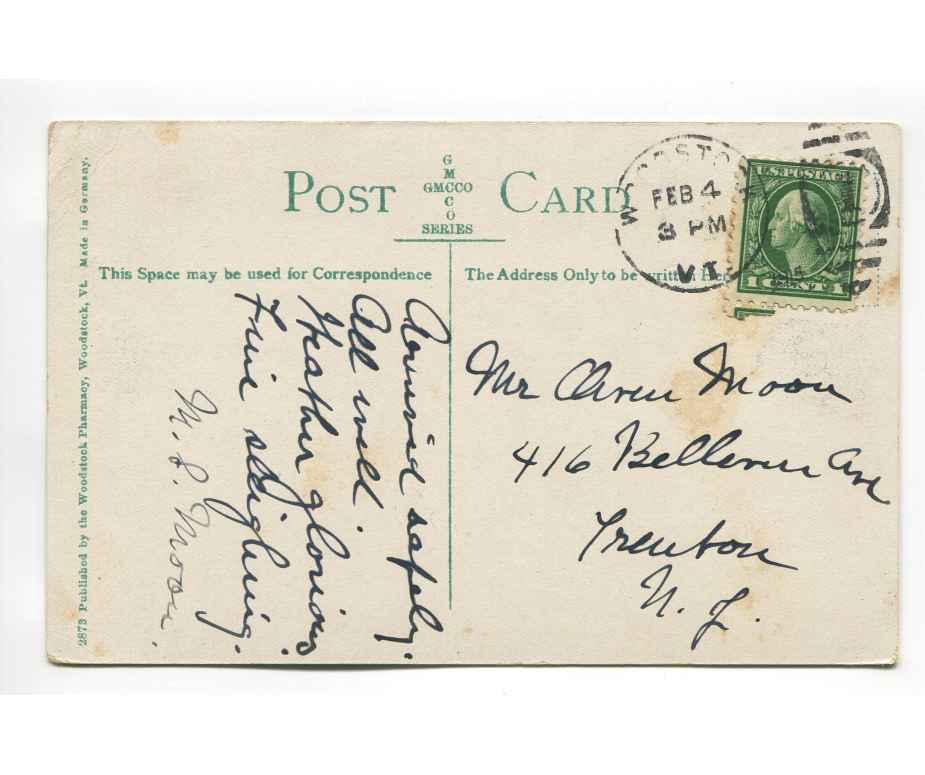 POST CARD
G
M
GMCCO
C
O
SERIES
This Space may be used for Correspondence
The Address Only to be written Here
2873 Published by the Woodstock Pharmacy, Woodstock, Vt. Made in Germany.
WOODSTOCK
FEB 4
3 PM
VT.
U.S. POSTAGE
1 CENT 1
Arrived safely.
All well.
Weather glorious.
Fine sleighing.
M. S. Moon.
Mr Moon
416 Bellevue Ave
Trenton
N. J.